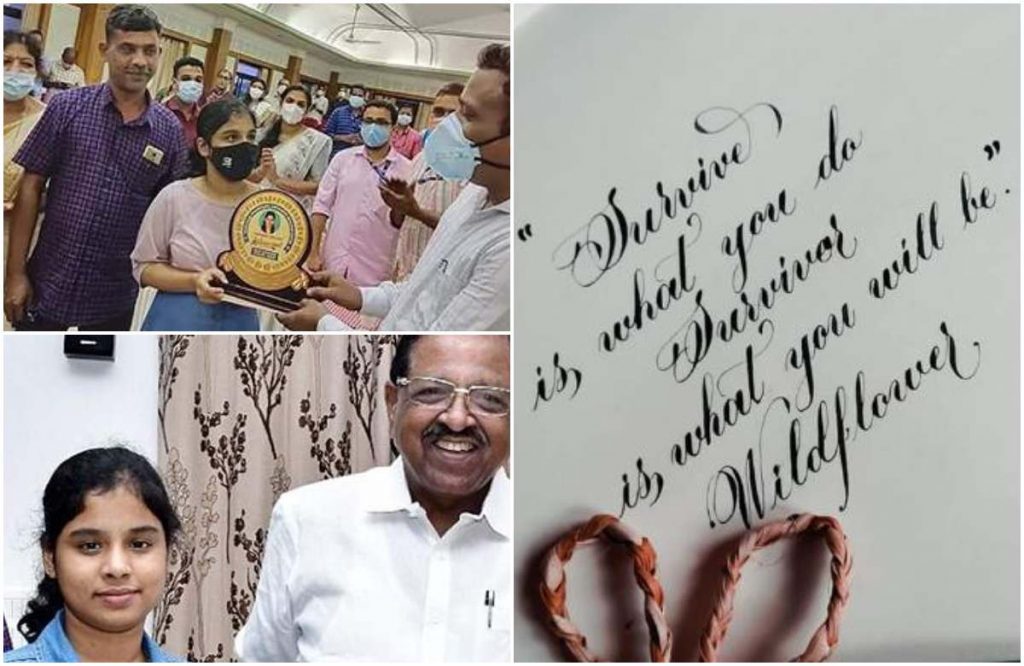 "Survive
is, what you do
Survivor
is, what you will be."
Wildflower,